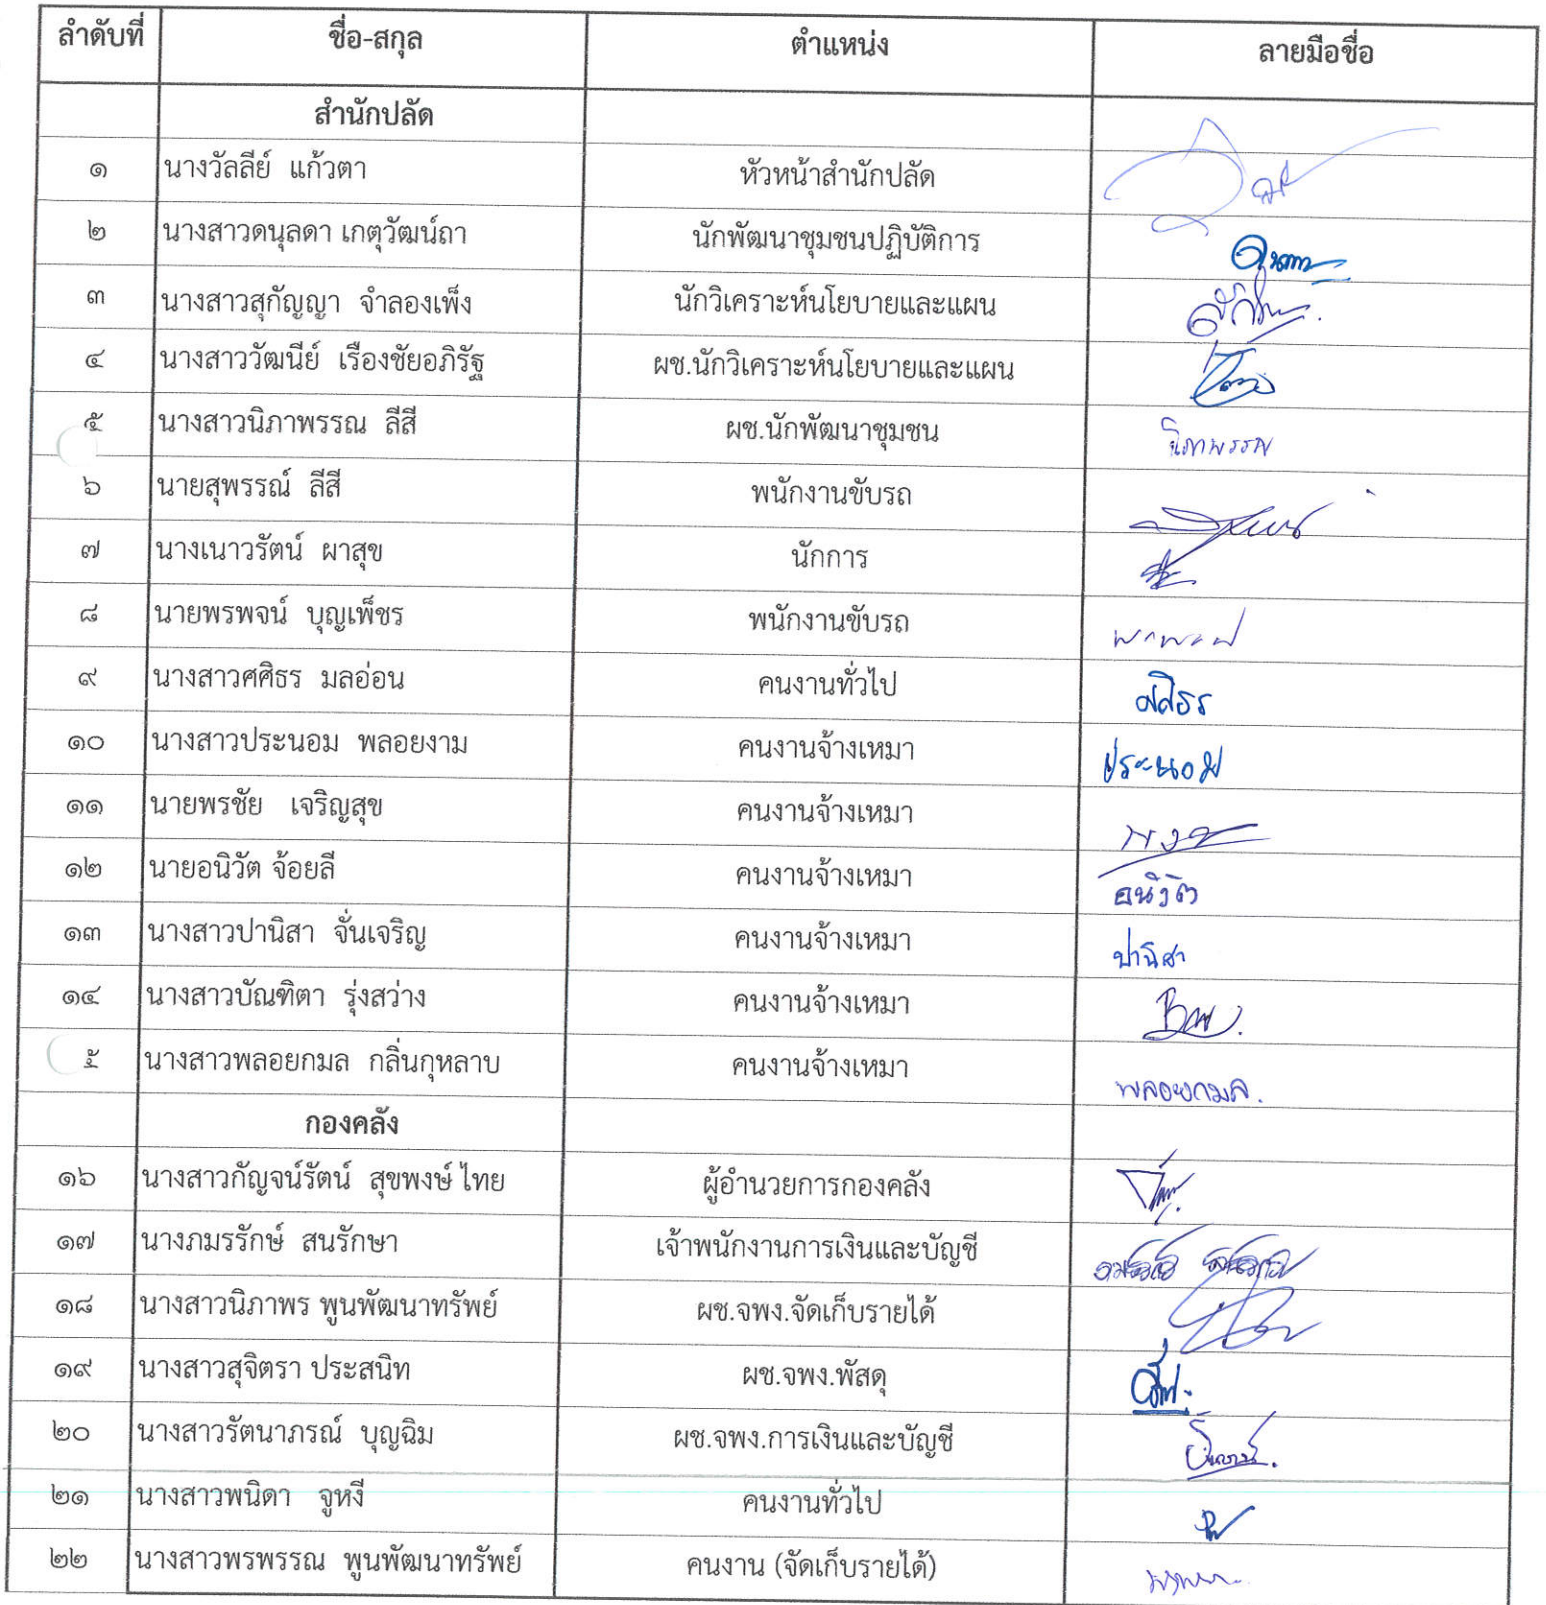 ลำดับที่ ชื่อ-สกุล ตำแหน่ง ลายมือชื่อ
สำนักปลัด
๑ นางวัลลีย์ แก้วตา หัวหน้าสำนักปลัด
๒ นางสาวดนุลดา เกตุวัฒน์ถา นักพัฒนาชุมชนปฏิบัติการ
๓ นางสาวสุกัญญา จำลองเพ็ง นักวิเคราะห์นโยบายและแผน
๔ นางสาววัฒนีย์ เรืองชัยอภิรัฐ ผช.นักวิเคราะห์นโยบายและแผน
๕ นางสาวนิภาพรรณ ลีสี ผช.นักพัฒนาชุมชน นิภาพรรณ
๖ นายสุพรรณ์ ลีสี พนักงานขับรถ
๗ นางเนาวรัตน์ ผาสุข นักการ
๘ นายพรพจน์ บุญเพ็ชร พนักงานขับรถ
๙ นางสาวศศิธร มลอ่อน คนงานทั่วไป ศศิธร
๑๐ นางสาวประนอม พลอยงาม คนงานจ้างเหมา ประนอม
๑๑ นายพรชัย เจริญสุข คนงานจ้างเหมา
๑๒ นายอนิวัต จ้อยลี คนงานจ้างเหมา อนิวัต
๑๓ นางสาวปานิสา จั่นเจริญ คนงานจ้างเหมา ปานิสา
๑๔ นางสาวบัณฑิตา รุ่งสว่าง คนงานจ้างเหมา
๕ นางสาวพลอยกมล กลิ่นกุหลาบ คนงานจ้างเหมา พลอยกมล.
กองคลัง
๑๖ นางสาวกัญจน์รัตน์ สุขพงษ์ ไทย ผู้อำนวยการกองคลัง
๑๗ นางภมรรักษ์ สนรักษา เจ้าพนักงานการเงินและบัญชี
๑๘ นางสาวนิภาพร พูนพัฒนาทรัพย์ ผช.จพง.จัดเก็บรายได้
๑๙ นางสาวสุจิตรา ประสนิท ผช.จพง.พัสดุ
๒๐ นางสาวรัตนาภรณ์ บุญฉิม ผช.จพง.การเงินและบัญชี
๒๑ นางสาวพนิดา จูหงี คนงานทั่วไป
๒๒ นางสาวพรพรรณ พูนพัฒนาทรัพย์ คนงาน (จัดเก็บรายได้)